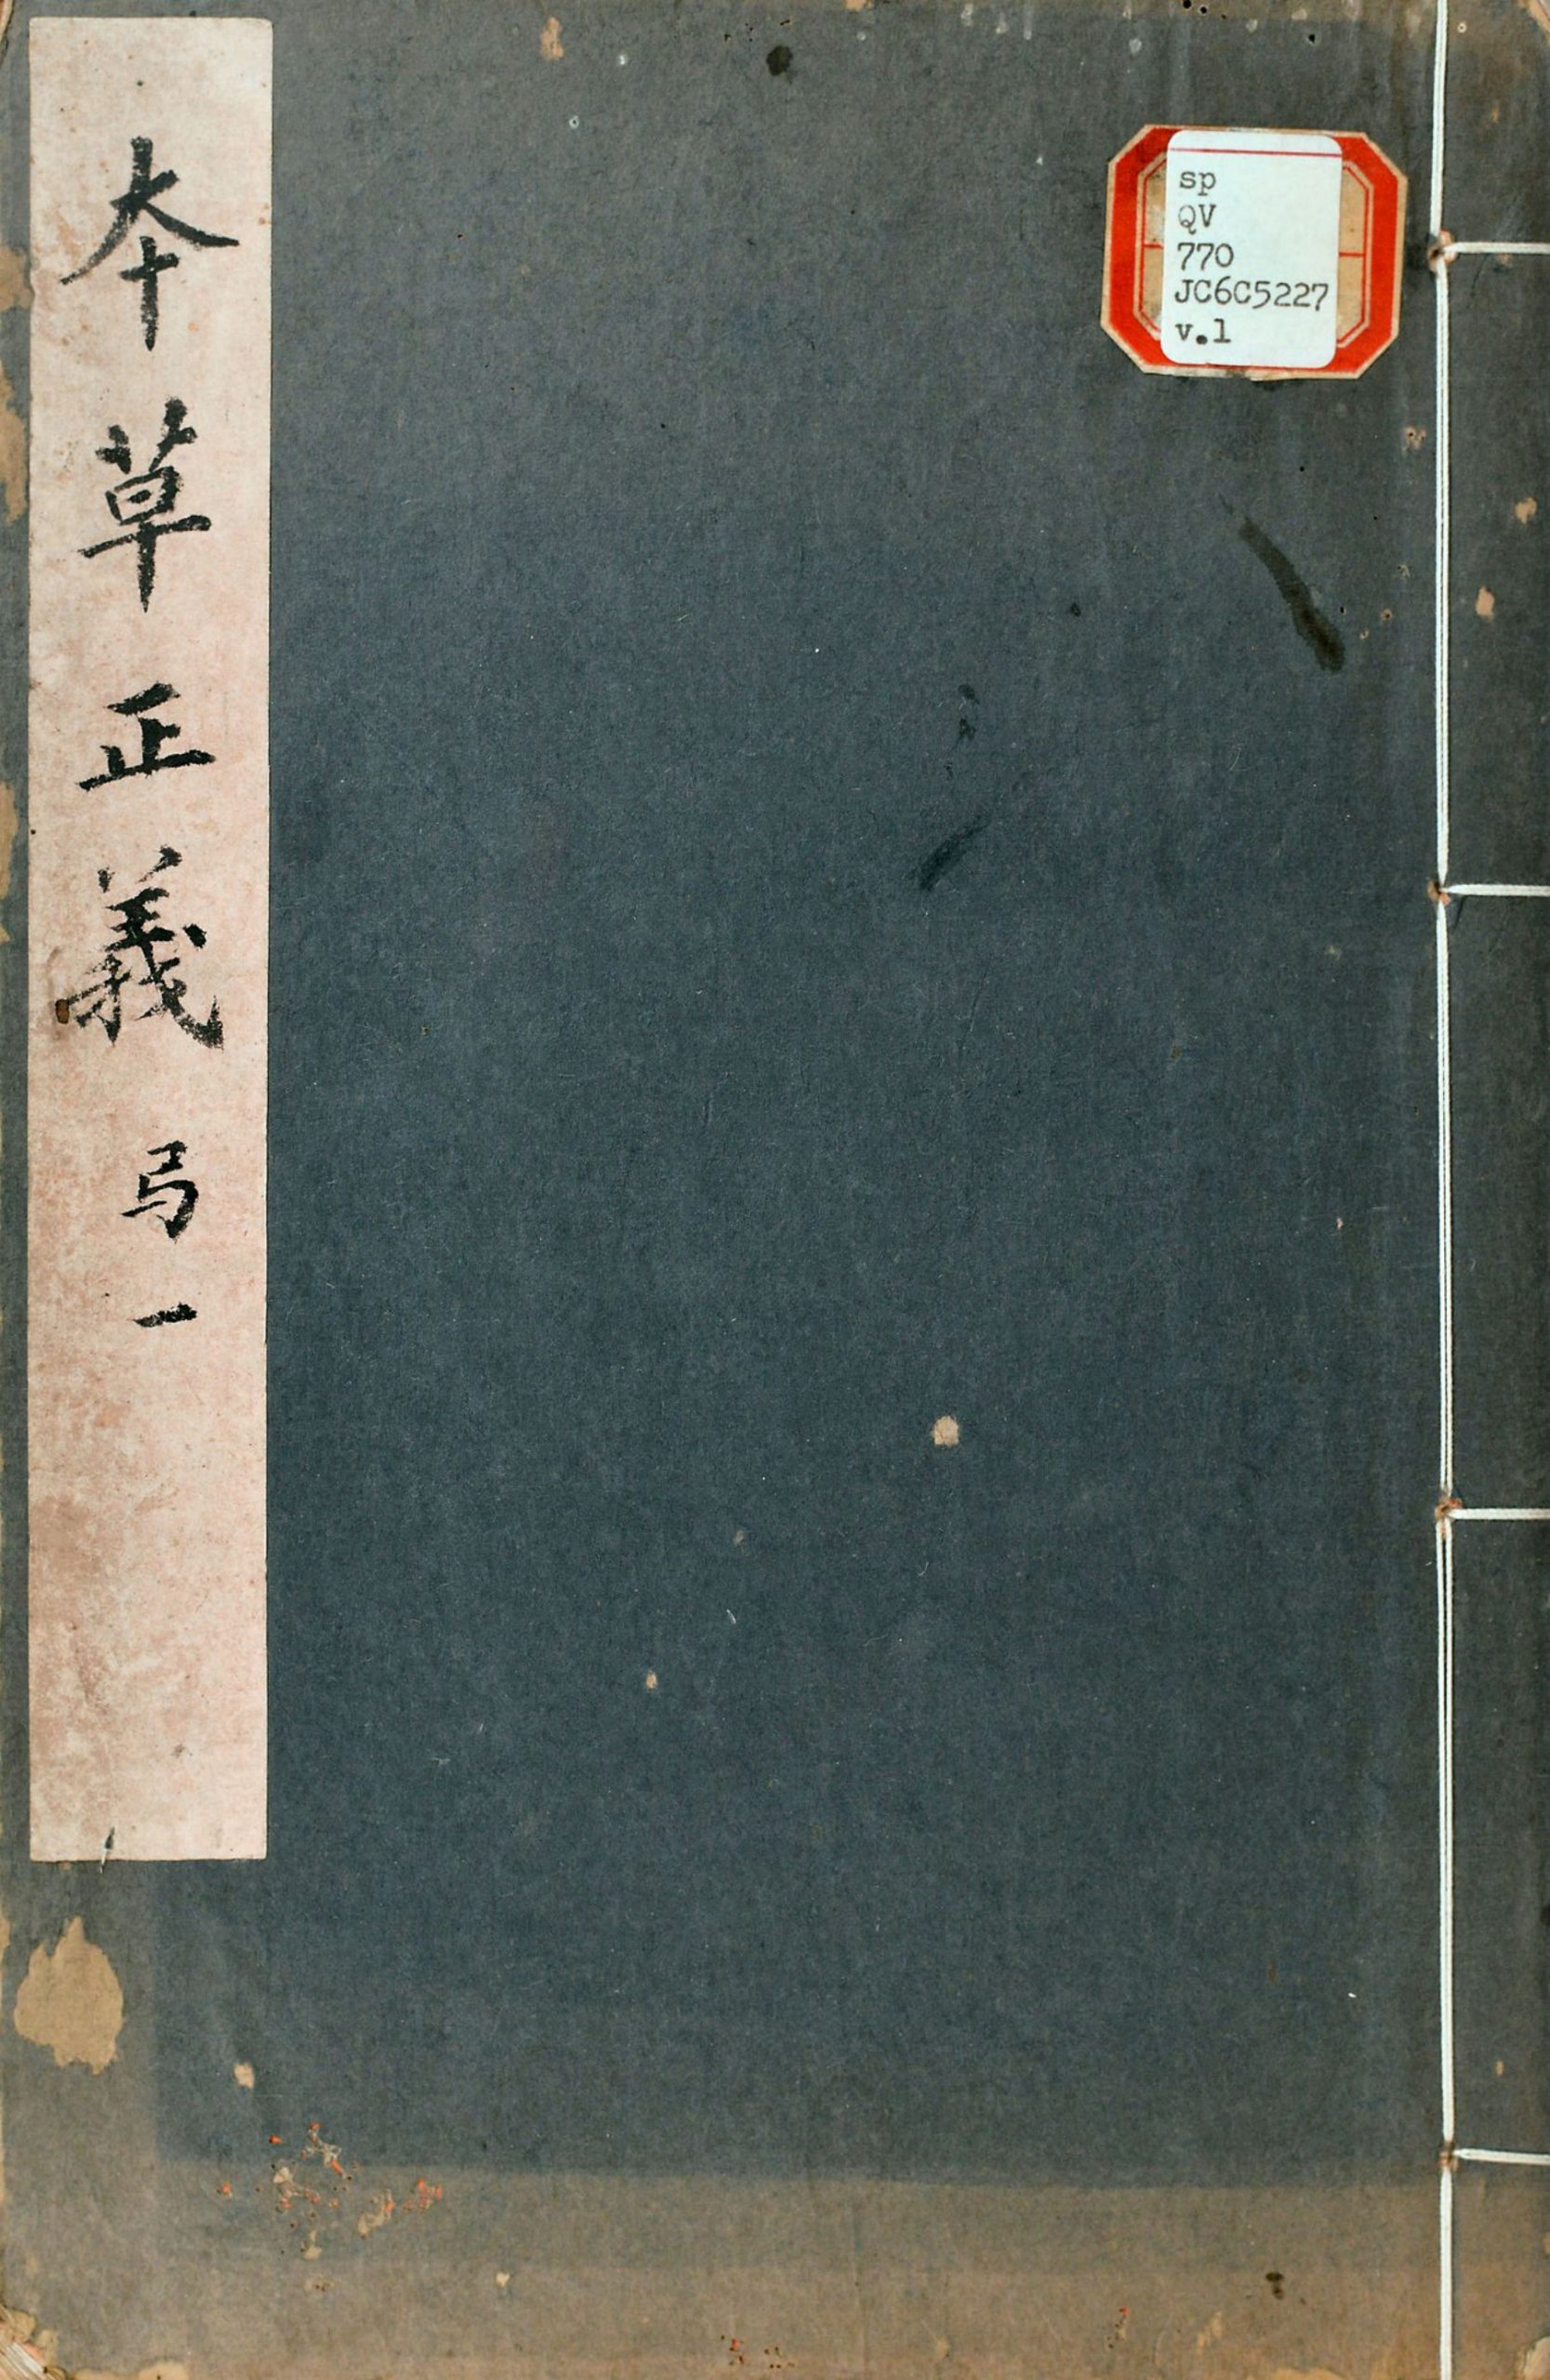 本草正義 弓一
sp
QV
770
JC6C5227
v.1